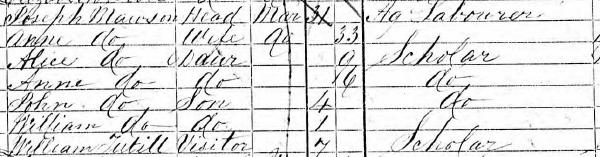 Joseph Mawson Head Mar 31 Ag Labourer
Anne do Wife do 33
Alice do Daur 9 Scholar
Anne do do 16 do
John do Son 4 do
William do do 1
William Tutill Visitor 7 Scholar